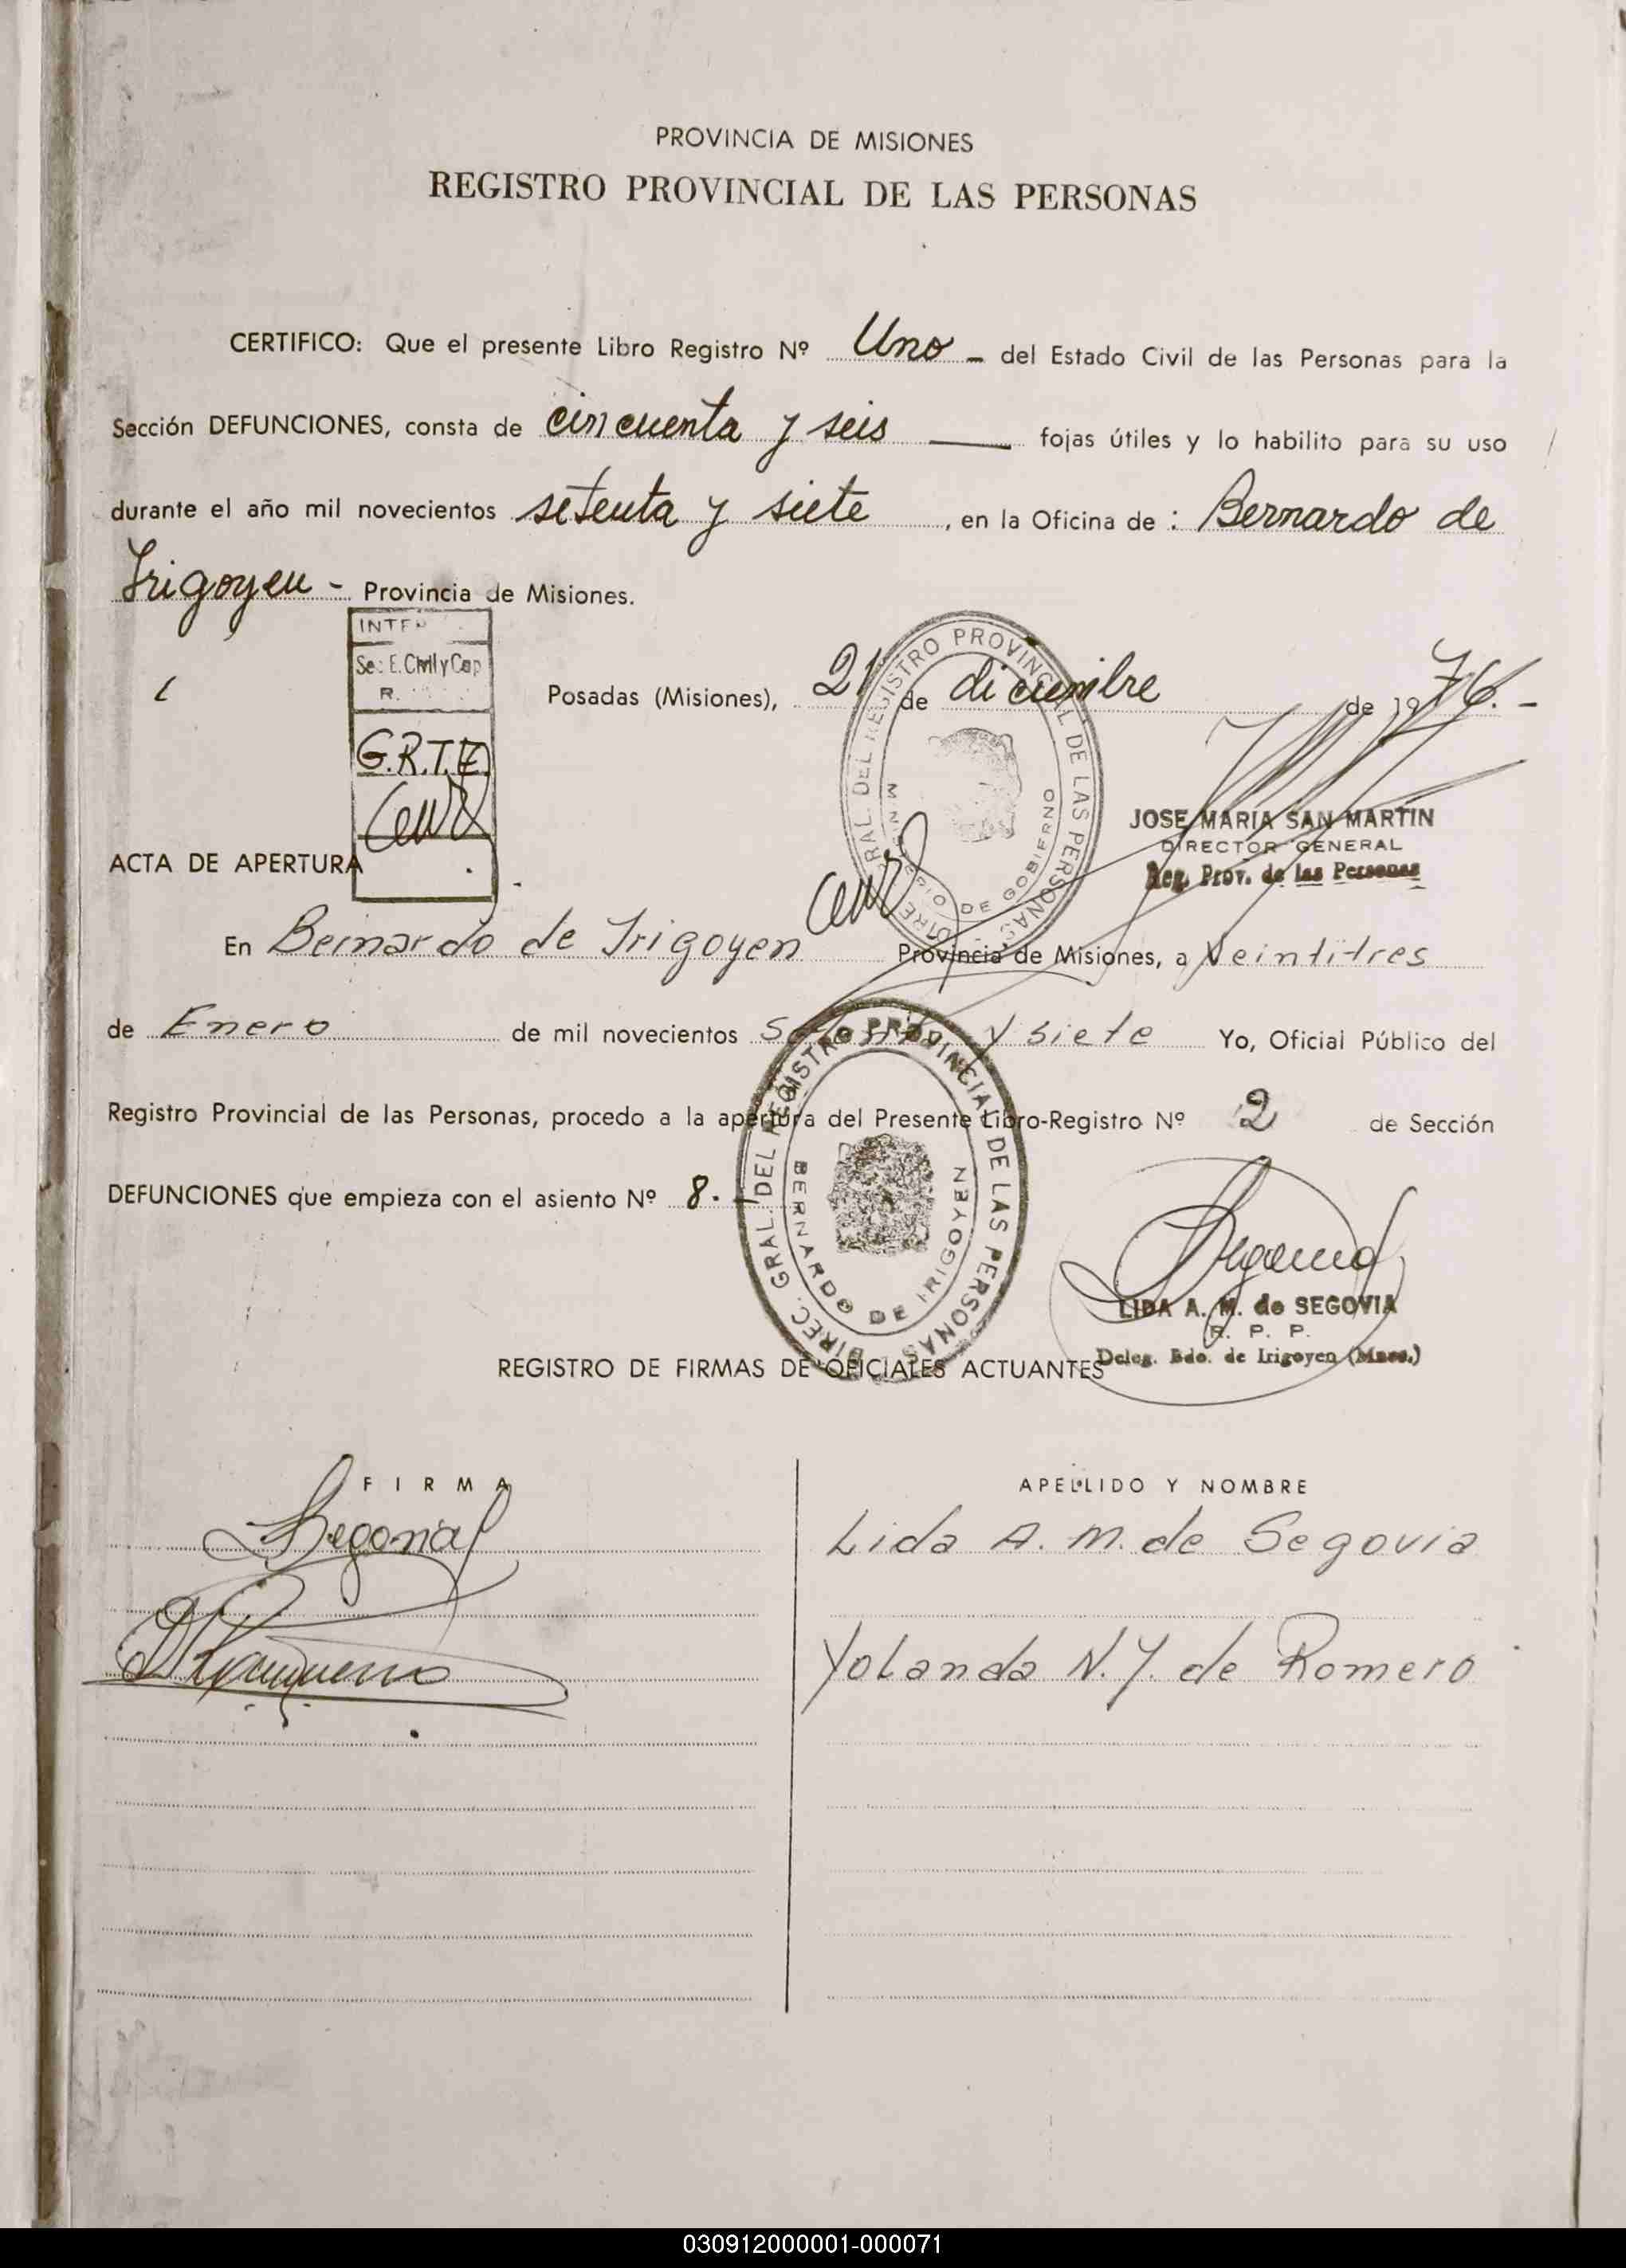 PROVINCIA DE MISIONES
REGISTRO PROVINCIAL DE LAS PERSONAS
CERTIFICO: Que el presente Libro Registro Nº Uno - del Estado Civil de las Personas para la
Sección DEFUNCIONES, consta de cincuenta y seis — fojas útiles y lo habilito para su uso
durante el año mil novecientos setenta y siete, en la Oficina de : Bernardo de
Irigoyen - Provincia de Misiones.
Sec. E. Civil y Cap
R.
G.R.T.E
Posadas (Misiones), 21 de diciembre de 1976. -
DIREC. GRAL. DEL REGISTRO PROVINCIAL DE LAS PERSONAS
MINISTERIO DE GOBIERNO
JOSE MARIA SAN MARTIN
DIRECTOR GENERAL
Reg. Prov. de las Personas
ACTA DE APERTURA
En Bernardo de Irigoyen Provincia de Misiones, a Veintitres
de Enero de mil novecientos Setenta y siete Yo, Oficial Público del
Registro Provincial de las Personas, procedo a la apertura del Presente Libro-Registro Nº 2 de Sección
DEFUNCIONES que empieza con el asiento Nº 8. -
DIREC. GRAL. DEL REGISTRO PROVINCIAL DE LAS PERSONAS
BERNARDO DE IRIGOYEN
Segovia
LIDA A. M. de SEGOVIA
R. P. P.
Deleg. Bdo. de Irigoyen (Mnes.)
REGISTRO DE FIRMAS DE OFICIALES ACTUANTES
FIRMA APELLIDO Y NOMBRE
Segovia Lida A. M. de Segovia
Yolanda N. Y. de Romero
030912000001-000071